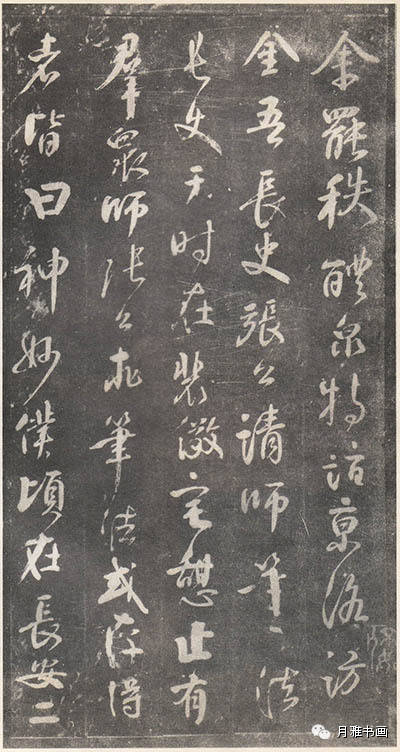 余罷秩醴泉特詣京洛訪
金吾長史張公請師筆法
長史于時在裴儆宅憩止有
羣眾師張公求筆法或存得
者皆曰神妙僕頃在長安二
月雅书画